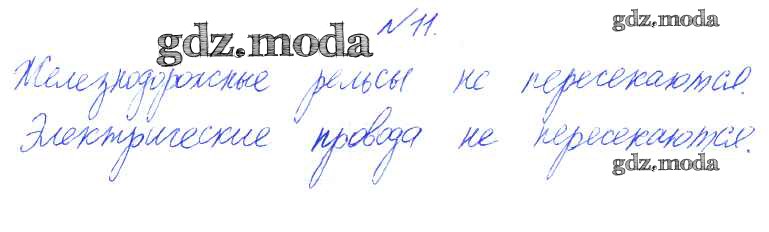 № 11.
gdz.moda
gdz.moda
Железнодорожные рельсы не пересекаются.
Электрические провода не пересекаются.
gdz.moda